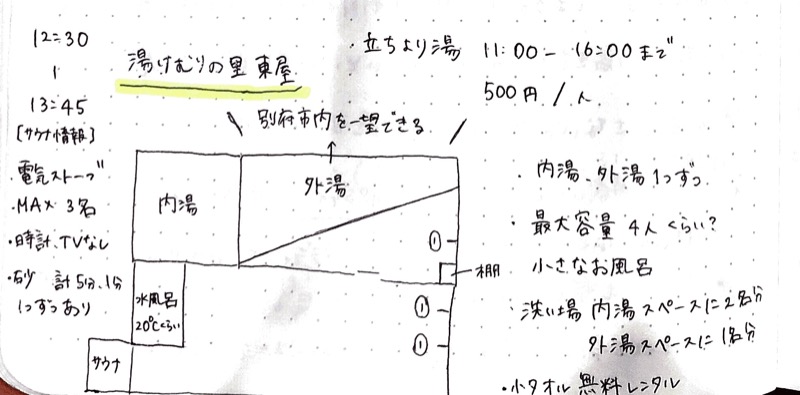 12:30
|
13:45
[サウナ情報]
・電気ストーブ
・MAX 3名
・時計、TVなし
・砂 計 5分、1分
1つずつあり
湯けむりの里 東屋
\ 別府市内を一望できる /
・立ちより湯 11:00 – 16:00 まで
500円 / 人
内湯
外湯
①
棚
①
①
水風呂
20℃くらい
サウナ
・内湯、外湯 1つずつ
・最大容量 4人くらい?
小さなお風呂
・洗い場 内湯スペースに2名分
外湯スペースに1名分
・小タオル 無料レンタル